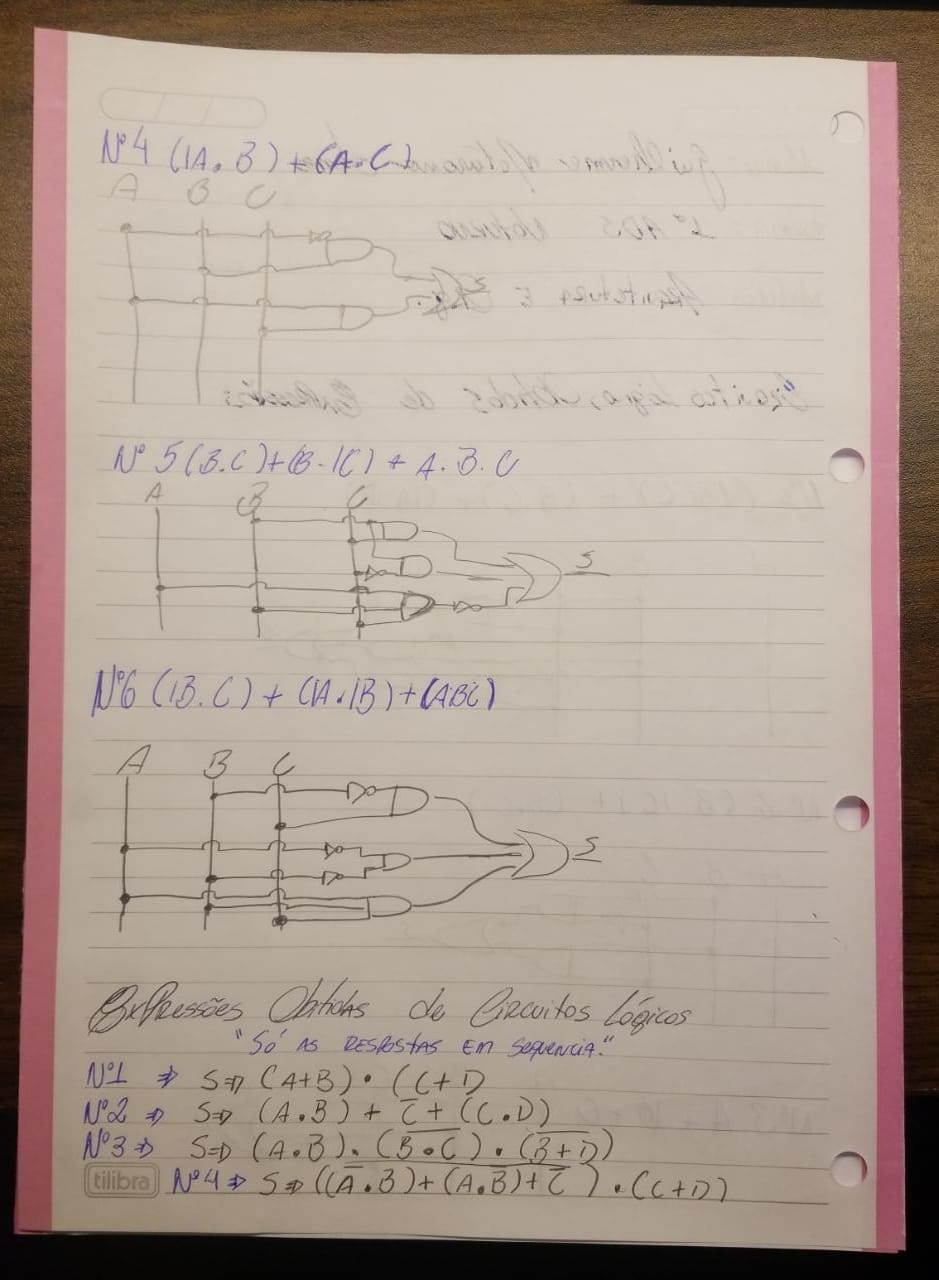 Nº4 (1A.B) + (A.C)
A B C
S
Nº 5 (B.C)+(B.1C) + A.B.C
A B C
S
Nº6 (1B.C) + (1A.1B)+(ABC)
A B C
S
Expressões Obtidas de Circuitos Lógicos
"Só AS RESPOSTAS EM SEQUENCIA."
Nº1 ⇒ S⇒ (A+B) • (C+D
Nº2 ⇒ S⇒ (A.B) + C̅ + (C.D)
Nº3 ⇒ S⇒ (A.B). (B.C) . (B+D)
tilibra Nº4 ⇒ S⇒ ((A̅.B)+(A.B)+C̅ ) . (C+D)